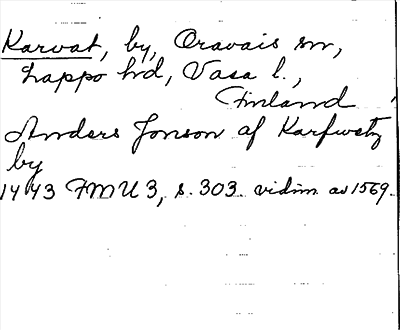 Karvat, by, Oravais sn,
Lappo hd, Vasa l.,
Finland
Anders Jonson af Karfwatz
by
1443 FMU 3, s. 303. vidim. av 1569.